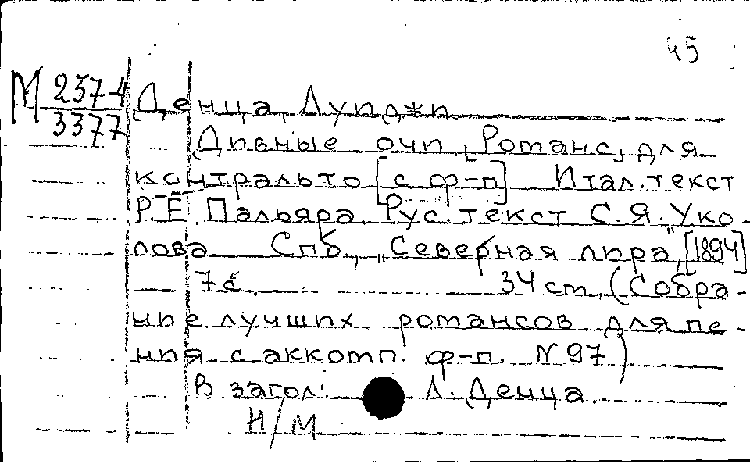 45
М 257-4 Денца, Луиджи
3377
Дивные очи. Романс, для
контральто [с ф-п] Итал. текст
Р. Е. Пальяра. Рус. текст С. Я. Уко-
лова. Спб., "Северная лира", [1894]
7 с. 34 ст, (Собра-
ние лучших романсов для пе-
ния с аккомп. ф-п. N 97)
В загол: Л. Денца.
Н/М